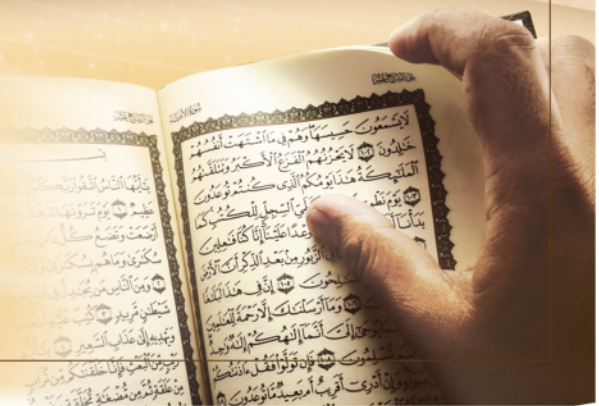 سُورَةُ الأَنبِيَاءِ
لَا يَسْمَعُونَ حَسِيسَهَا وَهُمْ فِي مَا ٱشْتَهَتْ أَنفُسُهُمْ
خَٰلِدُونَ ١٠٢ لَا يَحْزُنُهُمُ ٱلْفَزَعُ ٱلْأَكْبَرُ وَتَتَلَقَّىٰهُمُ
ٱلْمَلَٰٓئِكَةُ هَٰذَا يَوْمُكُمُ ٱلَّذِي كُنتُمْ تُوعَدُونَ
١٠٣ يَوْمَ نَطْوِي ٱلسِّجِلِّ لِلْكُتُبِ كَمَا
بَدَأْنَآ وَعْدًا عَلَيْنَآ إِنَّا كُنَّا فَٰعِلِينَ
ٱلزَّبُورِ مِنۢ بَعْدِ ٱلذِّكْرِ أَنَّ ٱلْأَرْضَ
١٠٥ إِنَّ فِي هَٰذَا لَبَلَٰغًا
وَمَآ أَرْسَلْنَٰكَ إِلَّا رَحْمَةً لِّلْعَٰلَمِينَ
يُوحَىٰٓ إِلَيَّ أَنَّمَآ إِلَٰهُكُمْ إِلَٰهٌ وَٰحِدٌ
مُّسْلِمُونَ ١٠٨ فَإِن تَوَلَّوْا۟ فَقُلْ ءَاذَنتُكُمْ
وَإِنْ أَدْرِيٓ أَقَرِيبٌ أَم بَعِيدٌ مَّا تُوعَدُونَ
يَٰٓأَيُّهَا ٱلنَّاسُ ٱتَّقُوا۟ رَبَّكُمْ
عَظِيمٌ ١ يَوْمَ تَرَوْنَهَا تَذْهَلُ
أَرْضَعَتْ وَتَضَعُ كُلُّ
سُكَٰرَىٰ وَمَا هُم بِسُكَٰرَىٰ
وَمِنَ ٱلنَّاسِ مَن يُجَٰدِلُ فِي
شَيْطَٰنٍ مَّرِيدٍ ٣ كُتِبَ عَلَيْهِ
وَيَهْدِيهِ إِلَىٰ عَذَابِ ٱلسَّعِيرِ ٤
رَيْبٍ مِّنَ ٱلْبَعْثِ فَإِنَّا خَلَقْنَٰكُم مِّن تُرَابٍ
مِنْ عَلَقَةٍ ثُمَّ مِن مُّضْغَةٍ مُّخَلَّقَةٍ